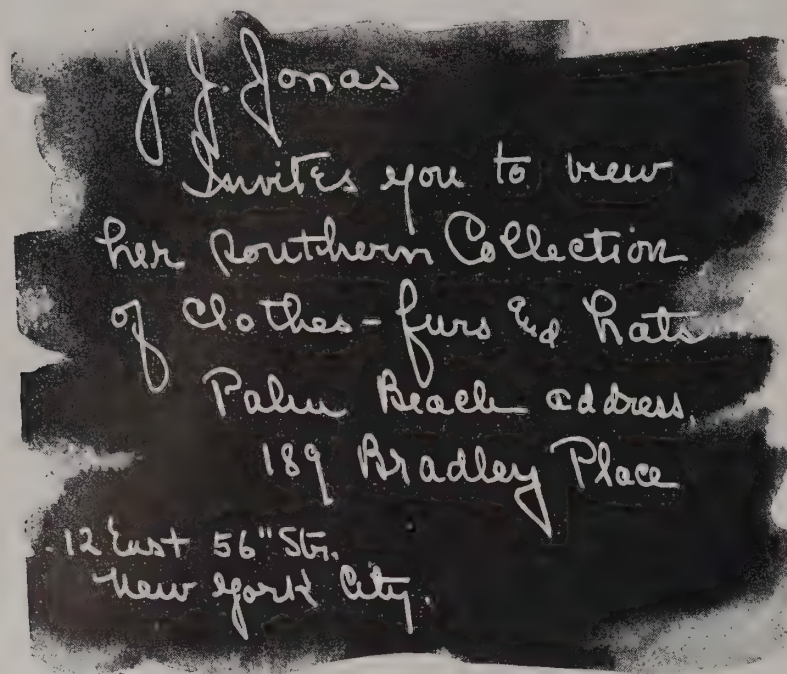 J. J. Jonas
Invites you to view
her southern Collection
of clothes - furs and hats
Palm Beach address,
189 Bradley Place
12 East 56" Str.
New York City.